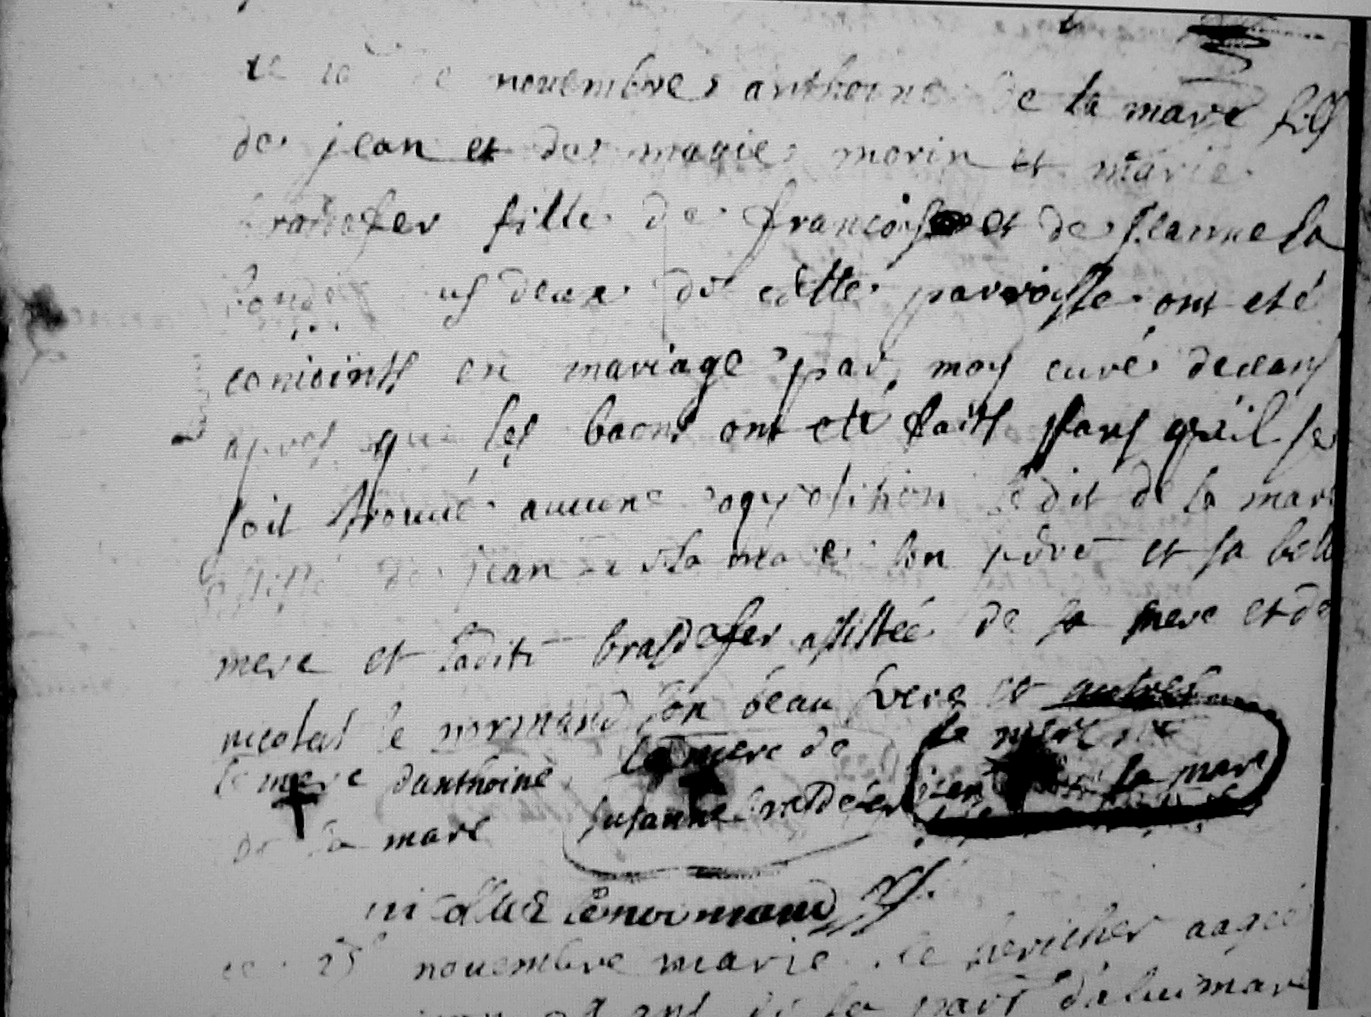 novembre anthoine de la mare fils
de jean et de marie morin et marie
fille de françois et de jeanne la
deux de cette parroisse ont eté
conioints en mariage par moy curé deceans
apres que les bans ont eté faits sans qu'il se
soit trouué aucune opposition ledit de la mare
assisté de jean de la mare son pere et sa belle
mere et ladite brasdefer assistée de sa mere et de
nicolas le normand son beau frere et autres
la merc danthoine la merc de la merc de
de la mare susanne jean de la mare
nicollas lenormand
ce 25 novembre marie le aagée
ans de la part